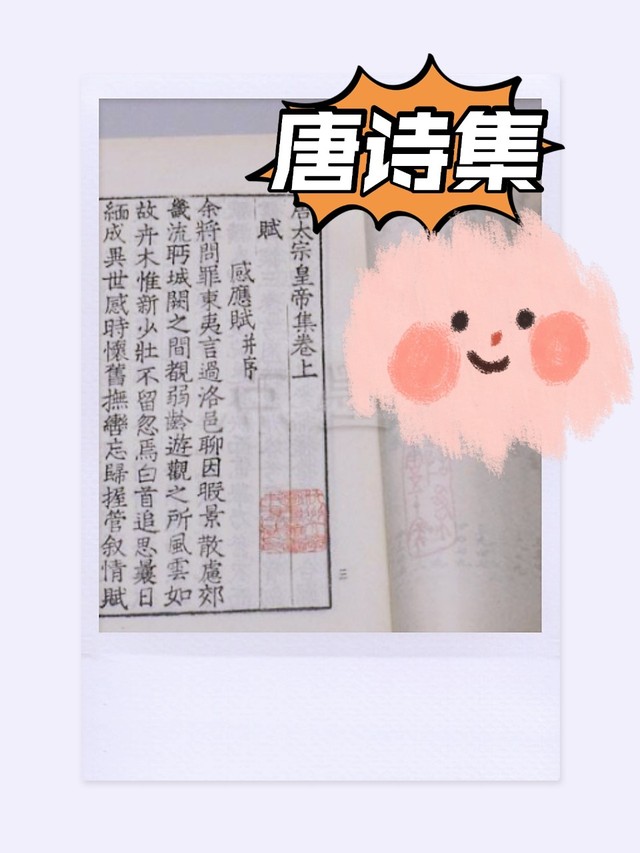 唐诗集
唐太宗皇帝集卷上
賦
感應賦并序
余將問罪東夷言過洛邑聊因暇景散慮郊
畿流眄城闕之間覩弱齡遊觀之所風雲如
故卉木惟新少壯不留忽焉白首追思曩日
緬成異世感時懷舊撫轡忘歸握管叙情賦
三